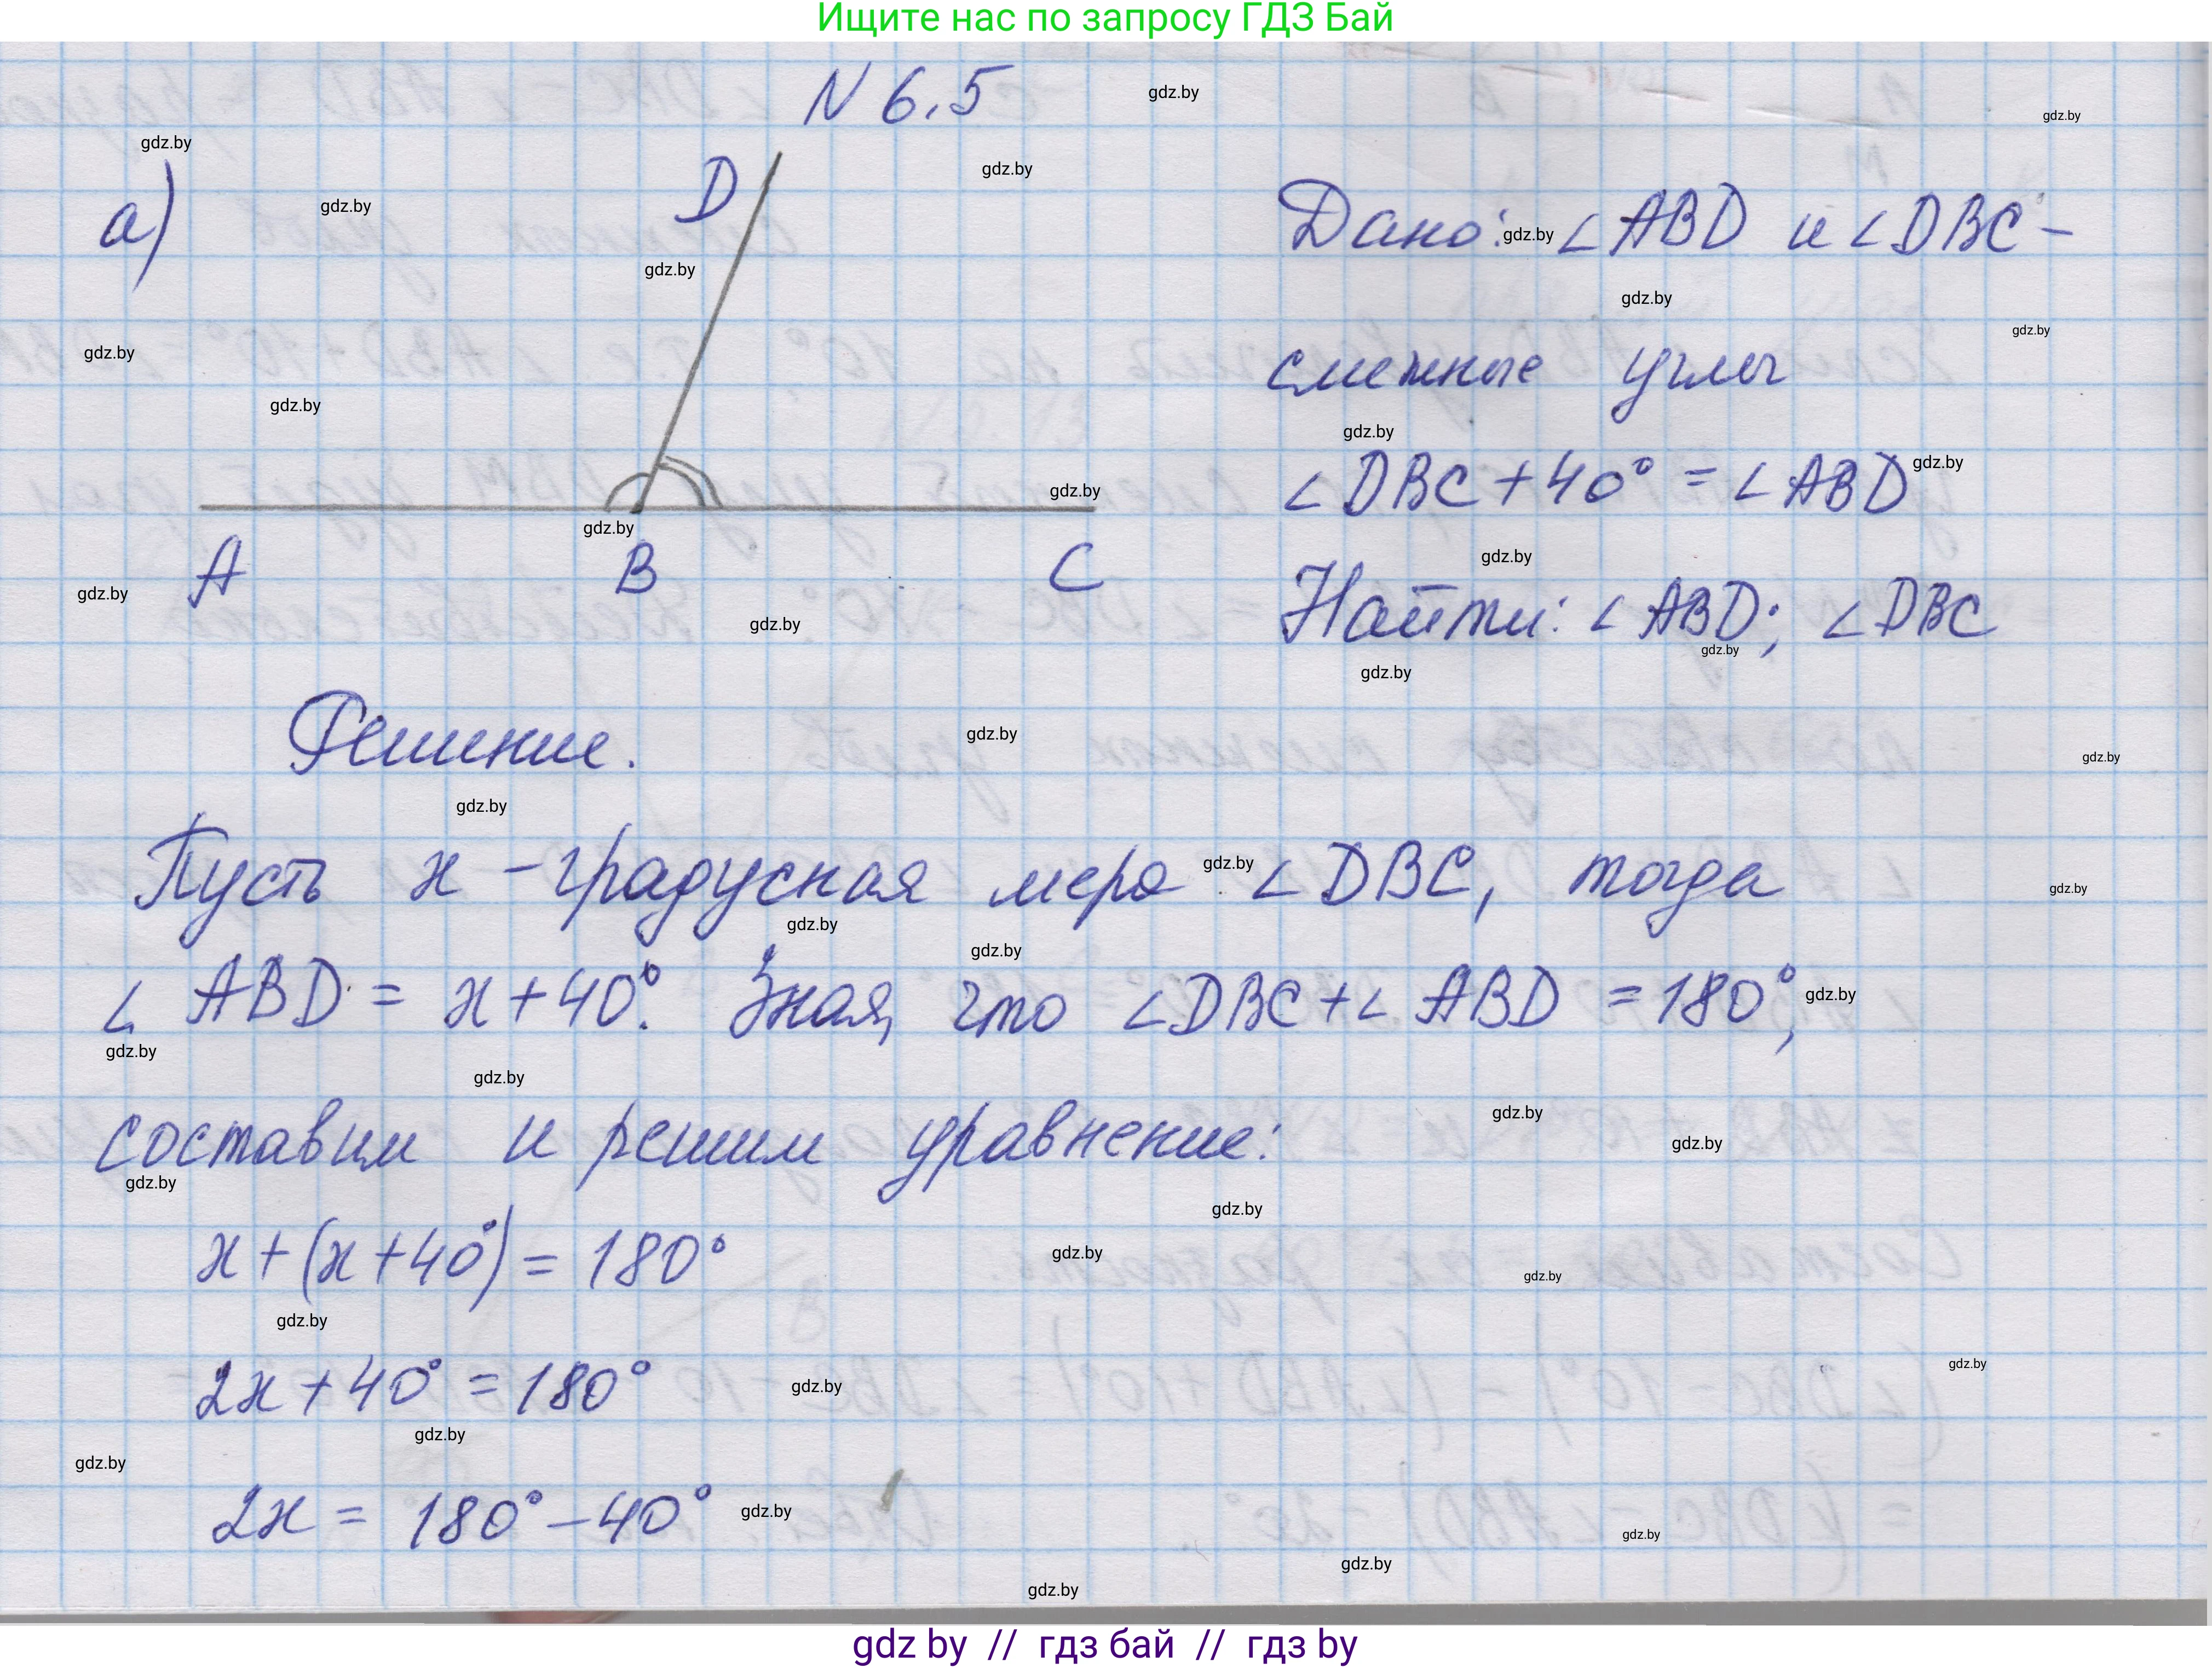 Ищите нас по запросу ГДЗ Бай
N 6.5
а)
D
A B C
Дано: ∠ABD и ∠DBC -
смежные углы
∠DBC + 40° = ∠ABD
Найти: ∠ABD; ∠DBC
Решение.
Пусть x - градусная мера ∠DBC, тогда
∠ABD = x + 40°. Зная, что ∠DBC + ∠ABD = 180°,
составим и решим уравнение:
x + (x + 40°) = 180°
2x + 40° = 180°
2x = 180° - 40°
gdz.by
gdz by // гдз бай // гдз by